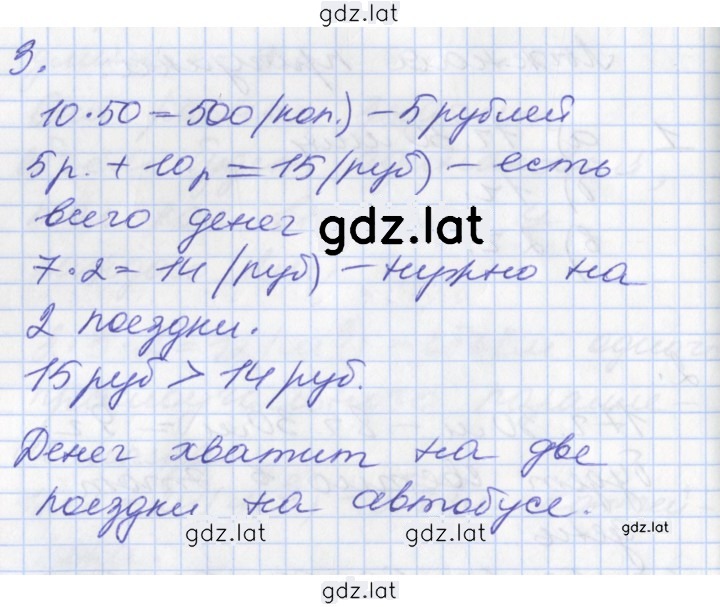 gdz.lat
3.
10·50=500(коп.) – 5 рублей
5р. + 10р = 15 (руб) – есть
всего денег gdz.lat
7·2 = 14 (руб) – нужно на
2 поездки.
15 руб > 14 руб.
Денег хватит на две
поездки на автобусе.
gdz.lat gdz.lat gdz.lat
gdz.lat